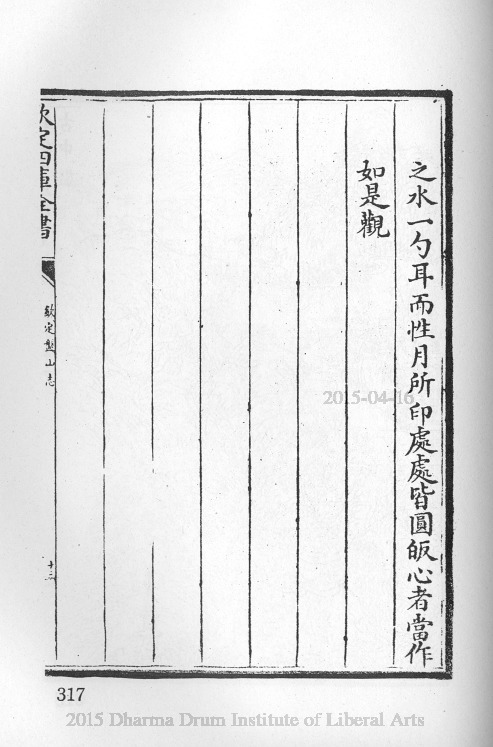 之水一勺耳而性月所印處處皆圓皈心者當作
如是觀
欽定四庫全書
欽定盤山志
十三
317
2015-04-16
2015 Dharma Drum Institute of Liberal Arts